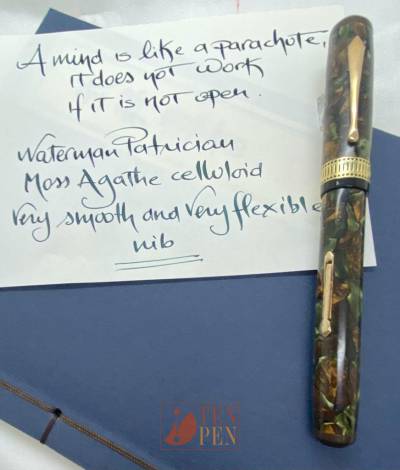 A mind is like a parachote,
it does not work
if it is not open.
Waterman Patrician
Moss Agathe celluloid
Very smooth and very flexible
nib
TEN
PEN